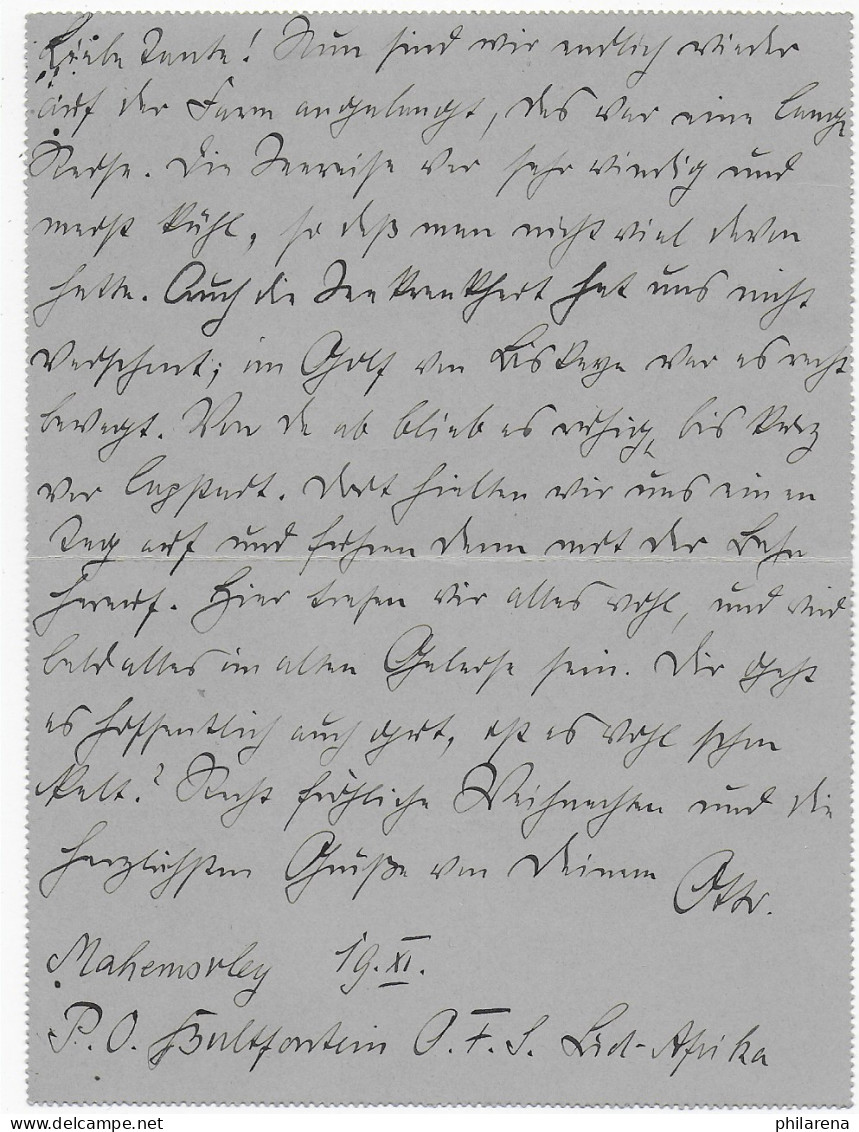 Liebe Tante! Nun sind wir endlich wieder
auf der Farm angelangt, das war eine lange
Reise. Die Seereise war sehr windig und
meist kühl, so daß man nicht viel davon
hatte. Auch die Seekrankheit hat uns nicht
verschont; im Golf von Biskaya war es recht
bewegt. Von da ab blieb es ruhig, bis kurz
vor Capstadt. Dort hielten wir uns einen
Tag auf und fuhren dann mit der Bahn
herauf. Hier trafen wir alles wohl, und wird
bald alles im alten Geleise sein. Dir geht
es hoffentlich auch gut, ist es wohl schon
kalt? Recht fröhliche Weihnachten und die
herzlichsten Grüße von Deinem Otto.
19. XI.
P. O. Bultfontein O. F. S. Süd-Afrika
philarena.